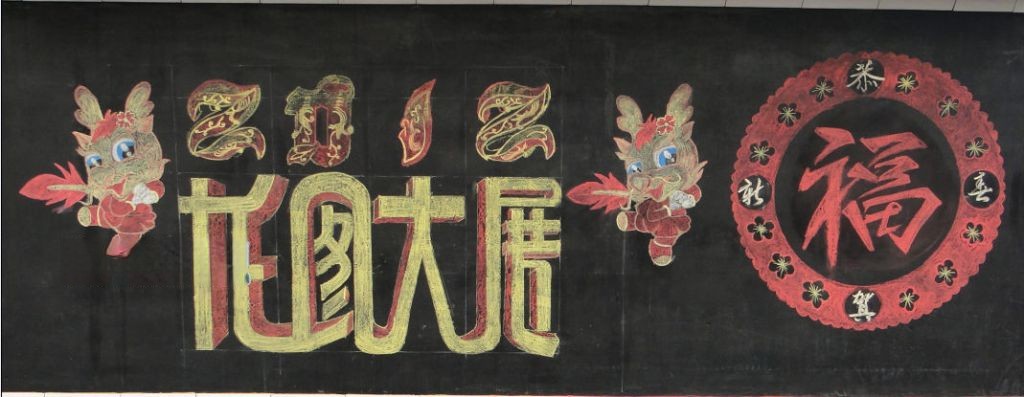 2012
龙图大展
恭
新 福 春
贺